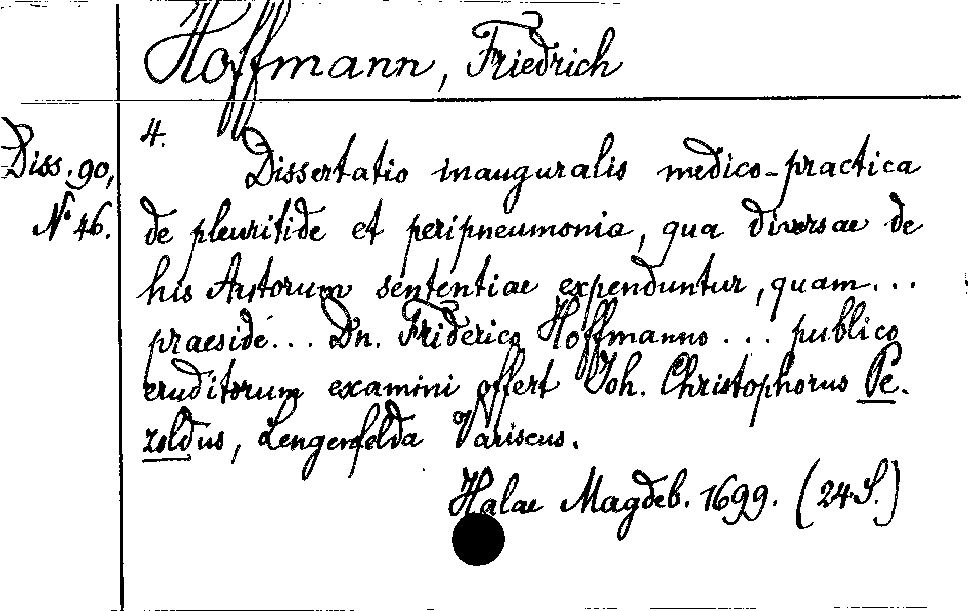 Hoffmann, Friedrich
Diss. 90,
No 46.
4.
Dissertatio inauguralis medico-practica
de pleuritide et peripneumonia, qua diversae de
his Autorum sententiae expenduntur, quam...
praeside... Dn. Friderico Hoffmanno... publico
eruditorum examini offert Joh. Christophorus Pe-
zoldus, Lengenfelda Variscus.
Halae Magdeb. 1699. (24 S.)